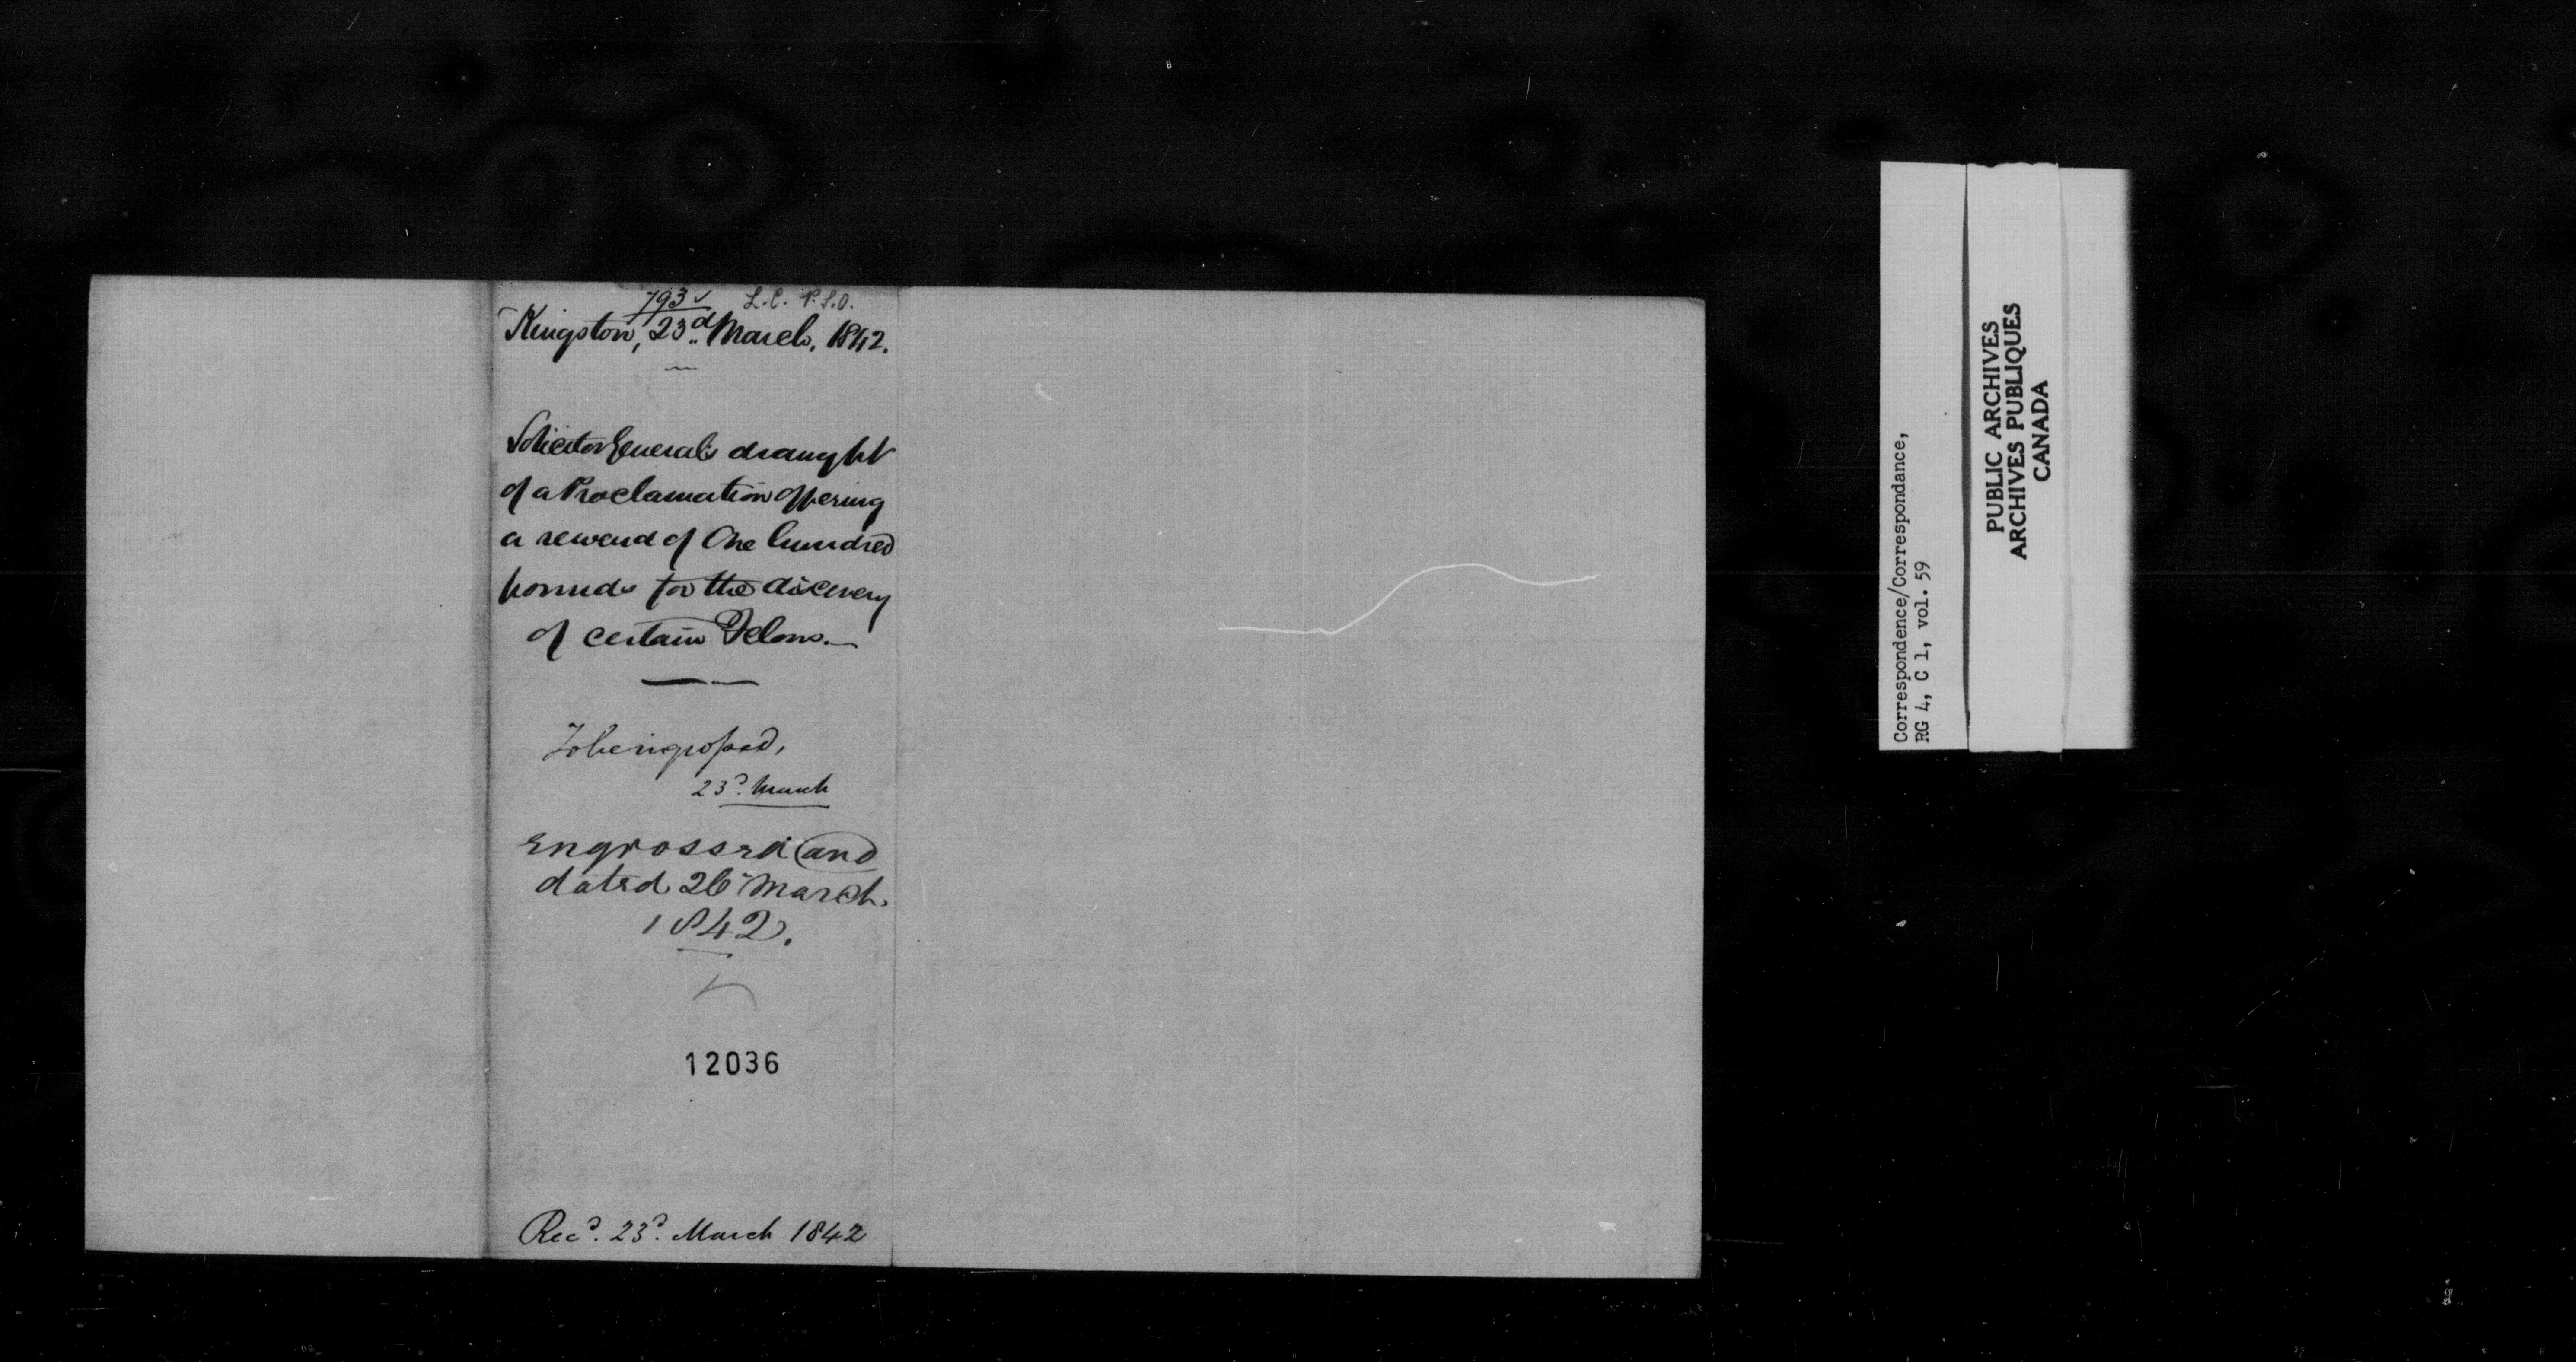 793 ✓ L.C. P.S.O.
Kingston, 23d March, 1842.
Solicitor General's draught
of a Proclamation offering
a reward of One hundred
pounds for the discovery
of certain Felons.—
To be engrossed,
23d. March
Engrossed and
dated 26 March.
1842.
12036
Recd. 23d. March 1842
Correspondence/Correspondance,
RG 4, C 1, vol. 59
PUBLIC ARCHIVES
ARCHIVES PUBLIQUES
CANADA